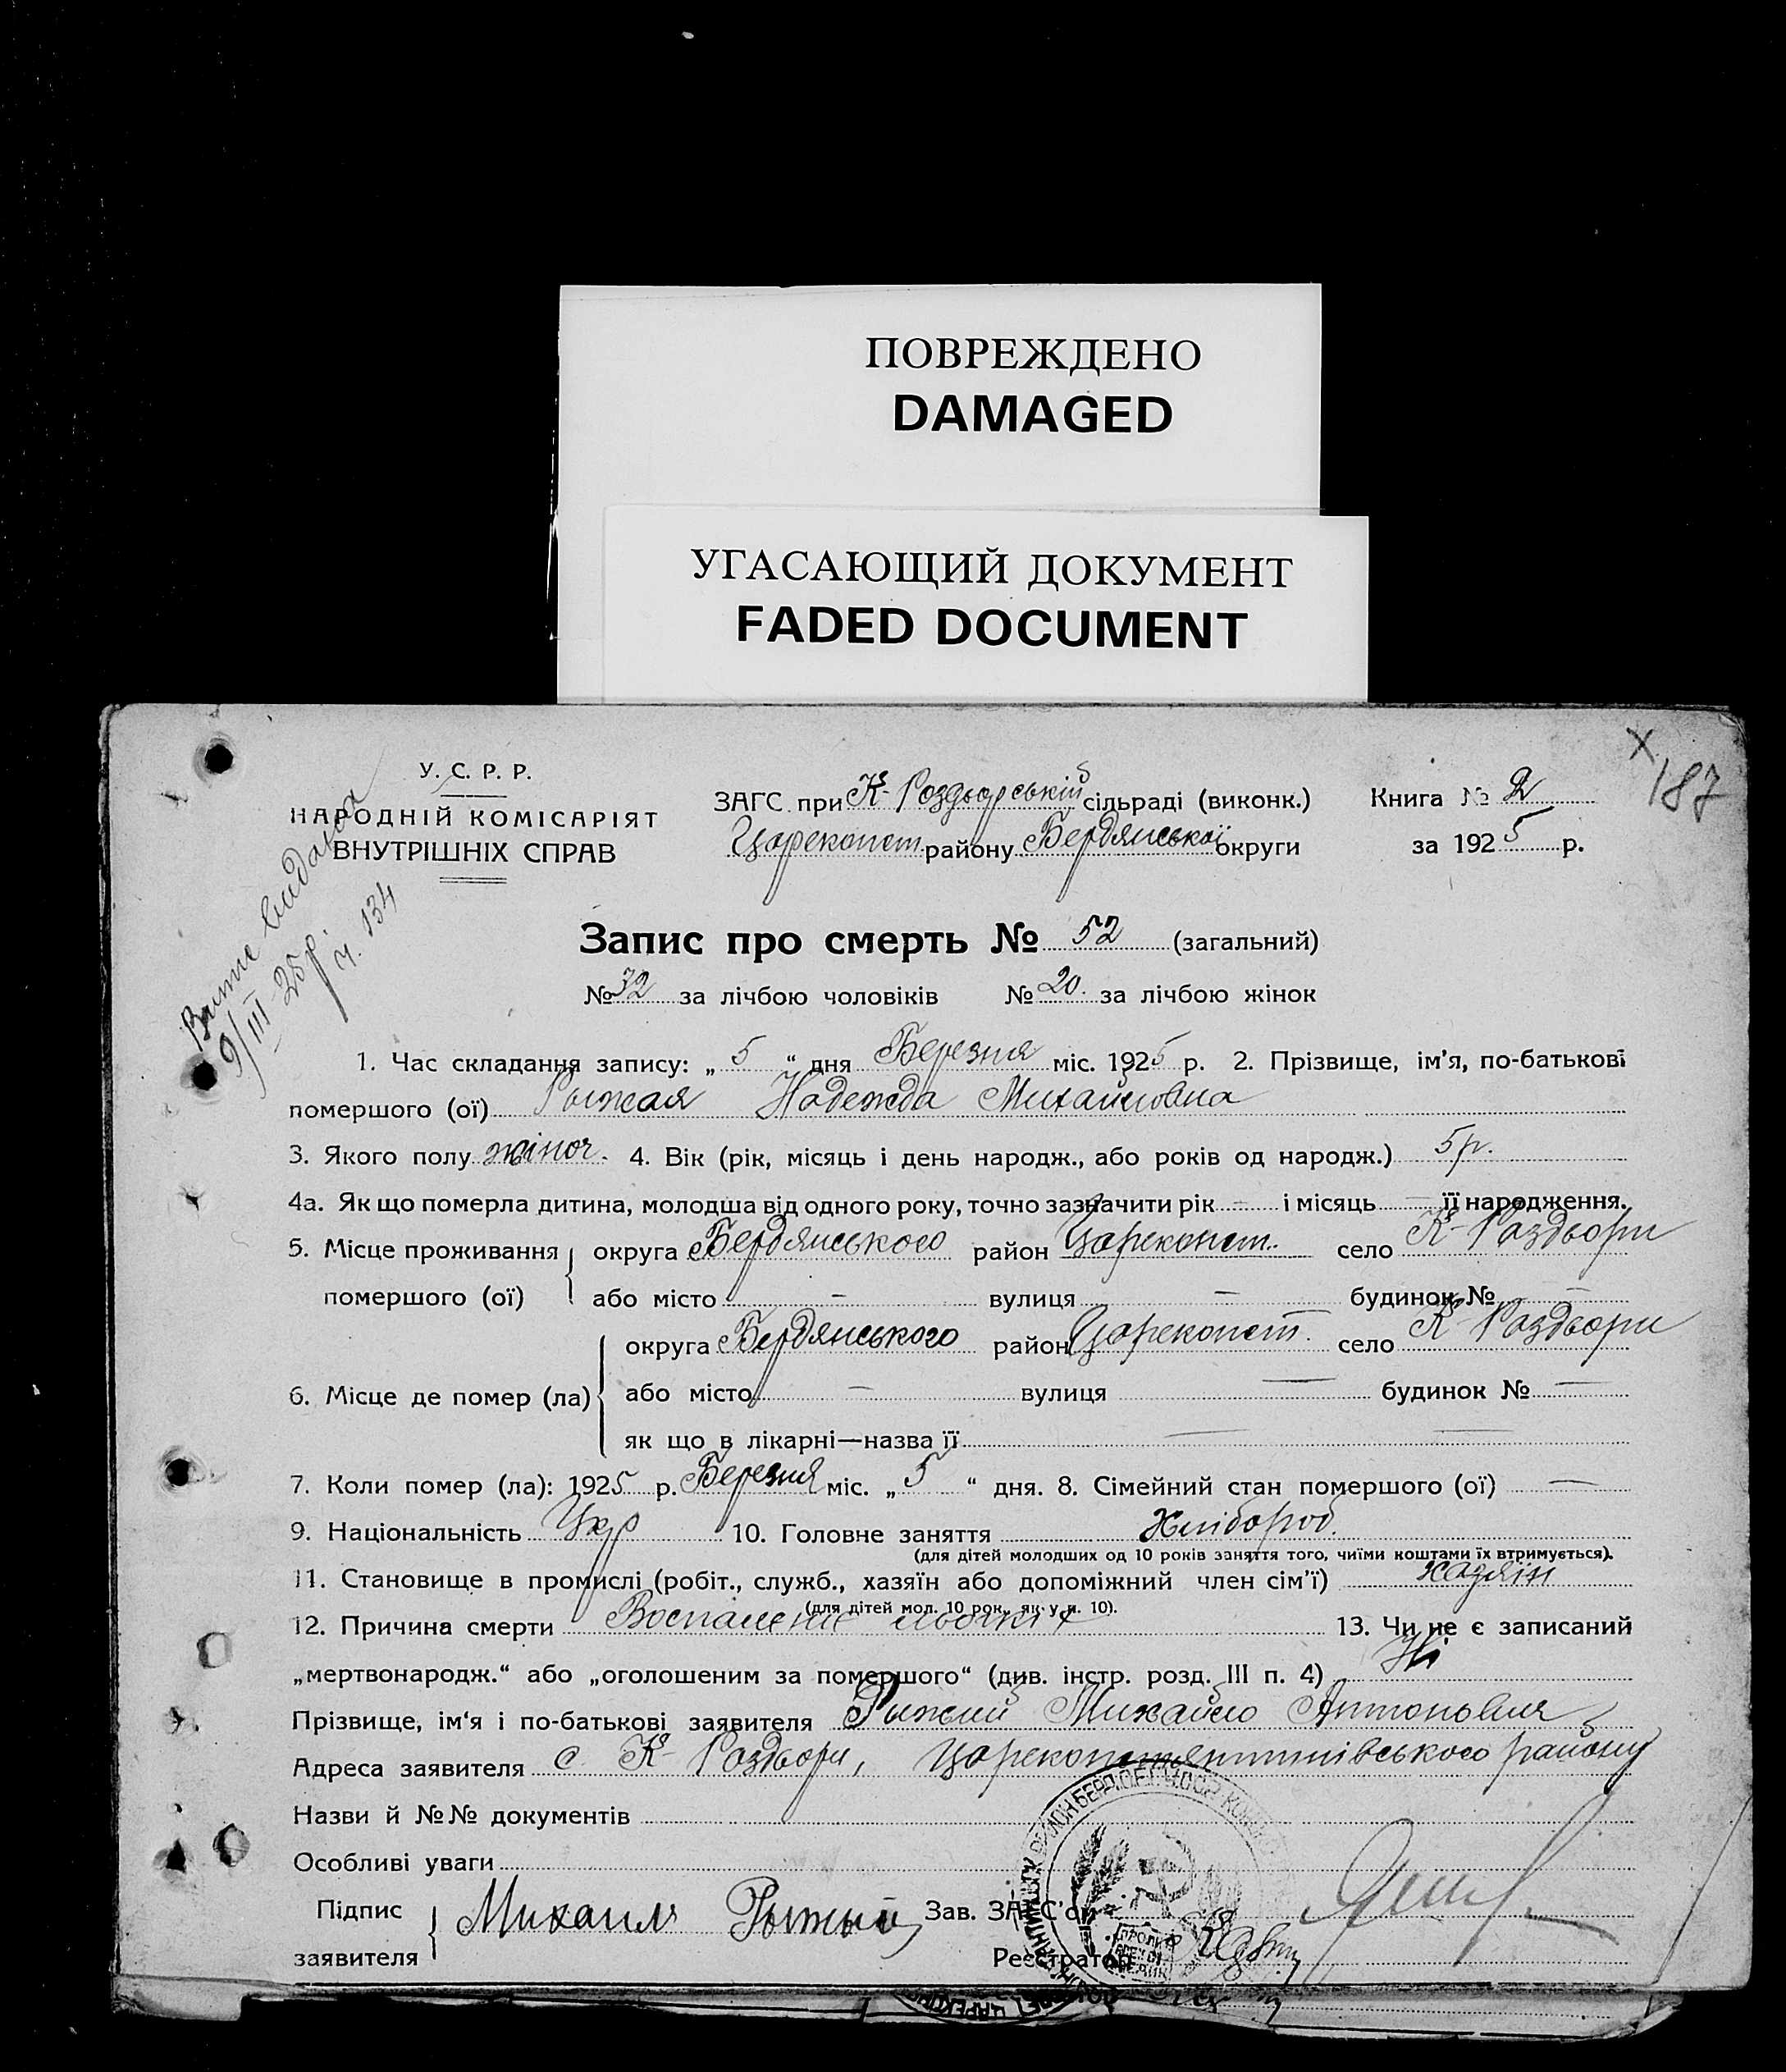 ПОВРЕЖДЕНО
DAMAGED
УГАСАЮЩИЙ ДОКУМЕНТ
FADED DOCUMENT
х 187
У. С. Р. Р.
НАРОДНІЙ КОМІСАРІЯТ
ВНУТРІШНІХ СПРАВ
ЗАГС при К-Роздорській сільраді (виконк.) Книга № 2
Цареконст. району Бердянської округи за 1925 р.
Витяг видана
9/III 25 р.
ч. 134
Запис про смерть № 52 (загальний)
№ 32 за лічбою чоловіків № 20. за лічбою жінок
1. Час складання запису: „ 5 “ дня Березня міс. 1925 р. 2. Прізвище, ім'я, по-батькові
помершого (ої) Рыжая Надежда Михайловна
3. Якого полу жіноч. 4. Вік (рік, місяць і день народж., або років од народж.) 5 р.
4а. Як що померла дитина, молодша від одного року, точно зазначити рік — і місяць — її народження.
5. Місце проживання округа Бердянського район Цареконст. село К-Раздори
помершого (ої) або місто — вулиця — будинок № —
округа Бердянського район Цареконст. село К-Раздори
6. Місце де помер (ла) або місто — вулиця — будинок № —
як що в лікарні—назва її — —
7. Коли помер (ла): 1925 р. Березня міс. „ 5 “ дня. 8. Сімейний стан помершого (ої) —
9. Національність Укр 10. Головне заняття Хлібороб.
(для дітей молодших од 10 років заняття того, чиїми коштами їх втримується).
11. Становище в промислі (робіт., служб., хазяїн або допоміжний член сім'ї) хазяїн
(для дітей мол. 10 рок. як у п. 10).
12. Причина смерти Воспаление льогких 13. Чи не є записаний
„мертвонародж.“ або „оголошеним за помершого“ (див. інстр. розд. III п. 4) Ні
Прізвище, ім'я і по-батькові заявителя Рыжий Михайло Антонович
Адреса заявителя с. К-Раздори, Цареконстянтинівського району
Назви й №№ документів
Особливі уваги
Підпис
заявителя Михаил Рыжый
Зав. ЗАГС'ом
Реєстратор